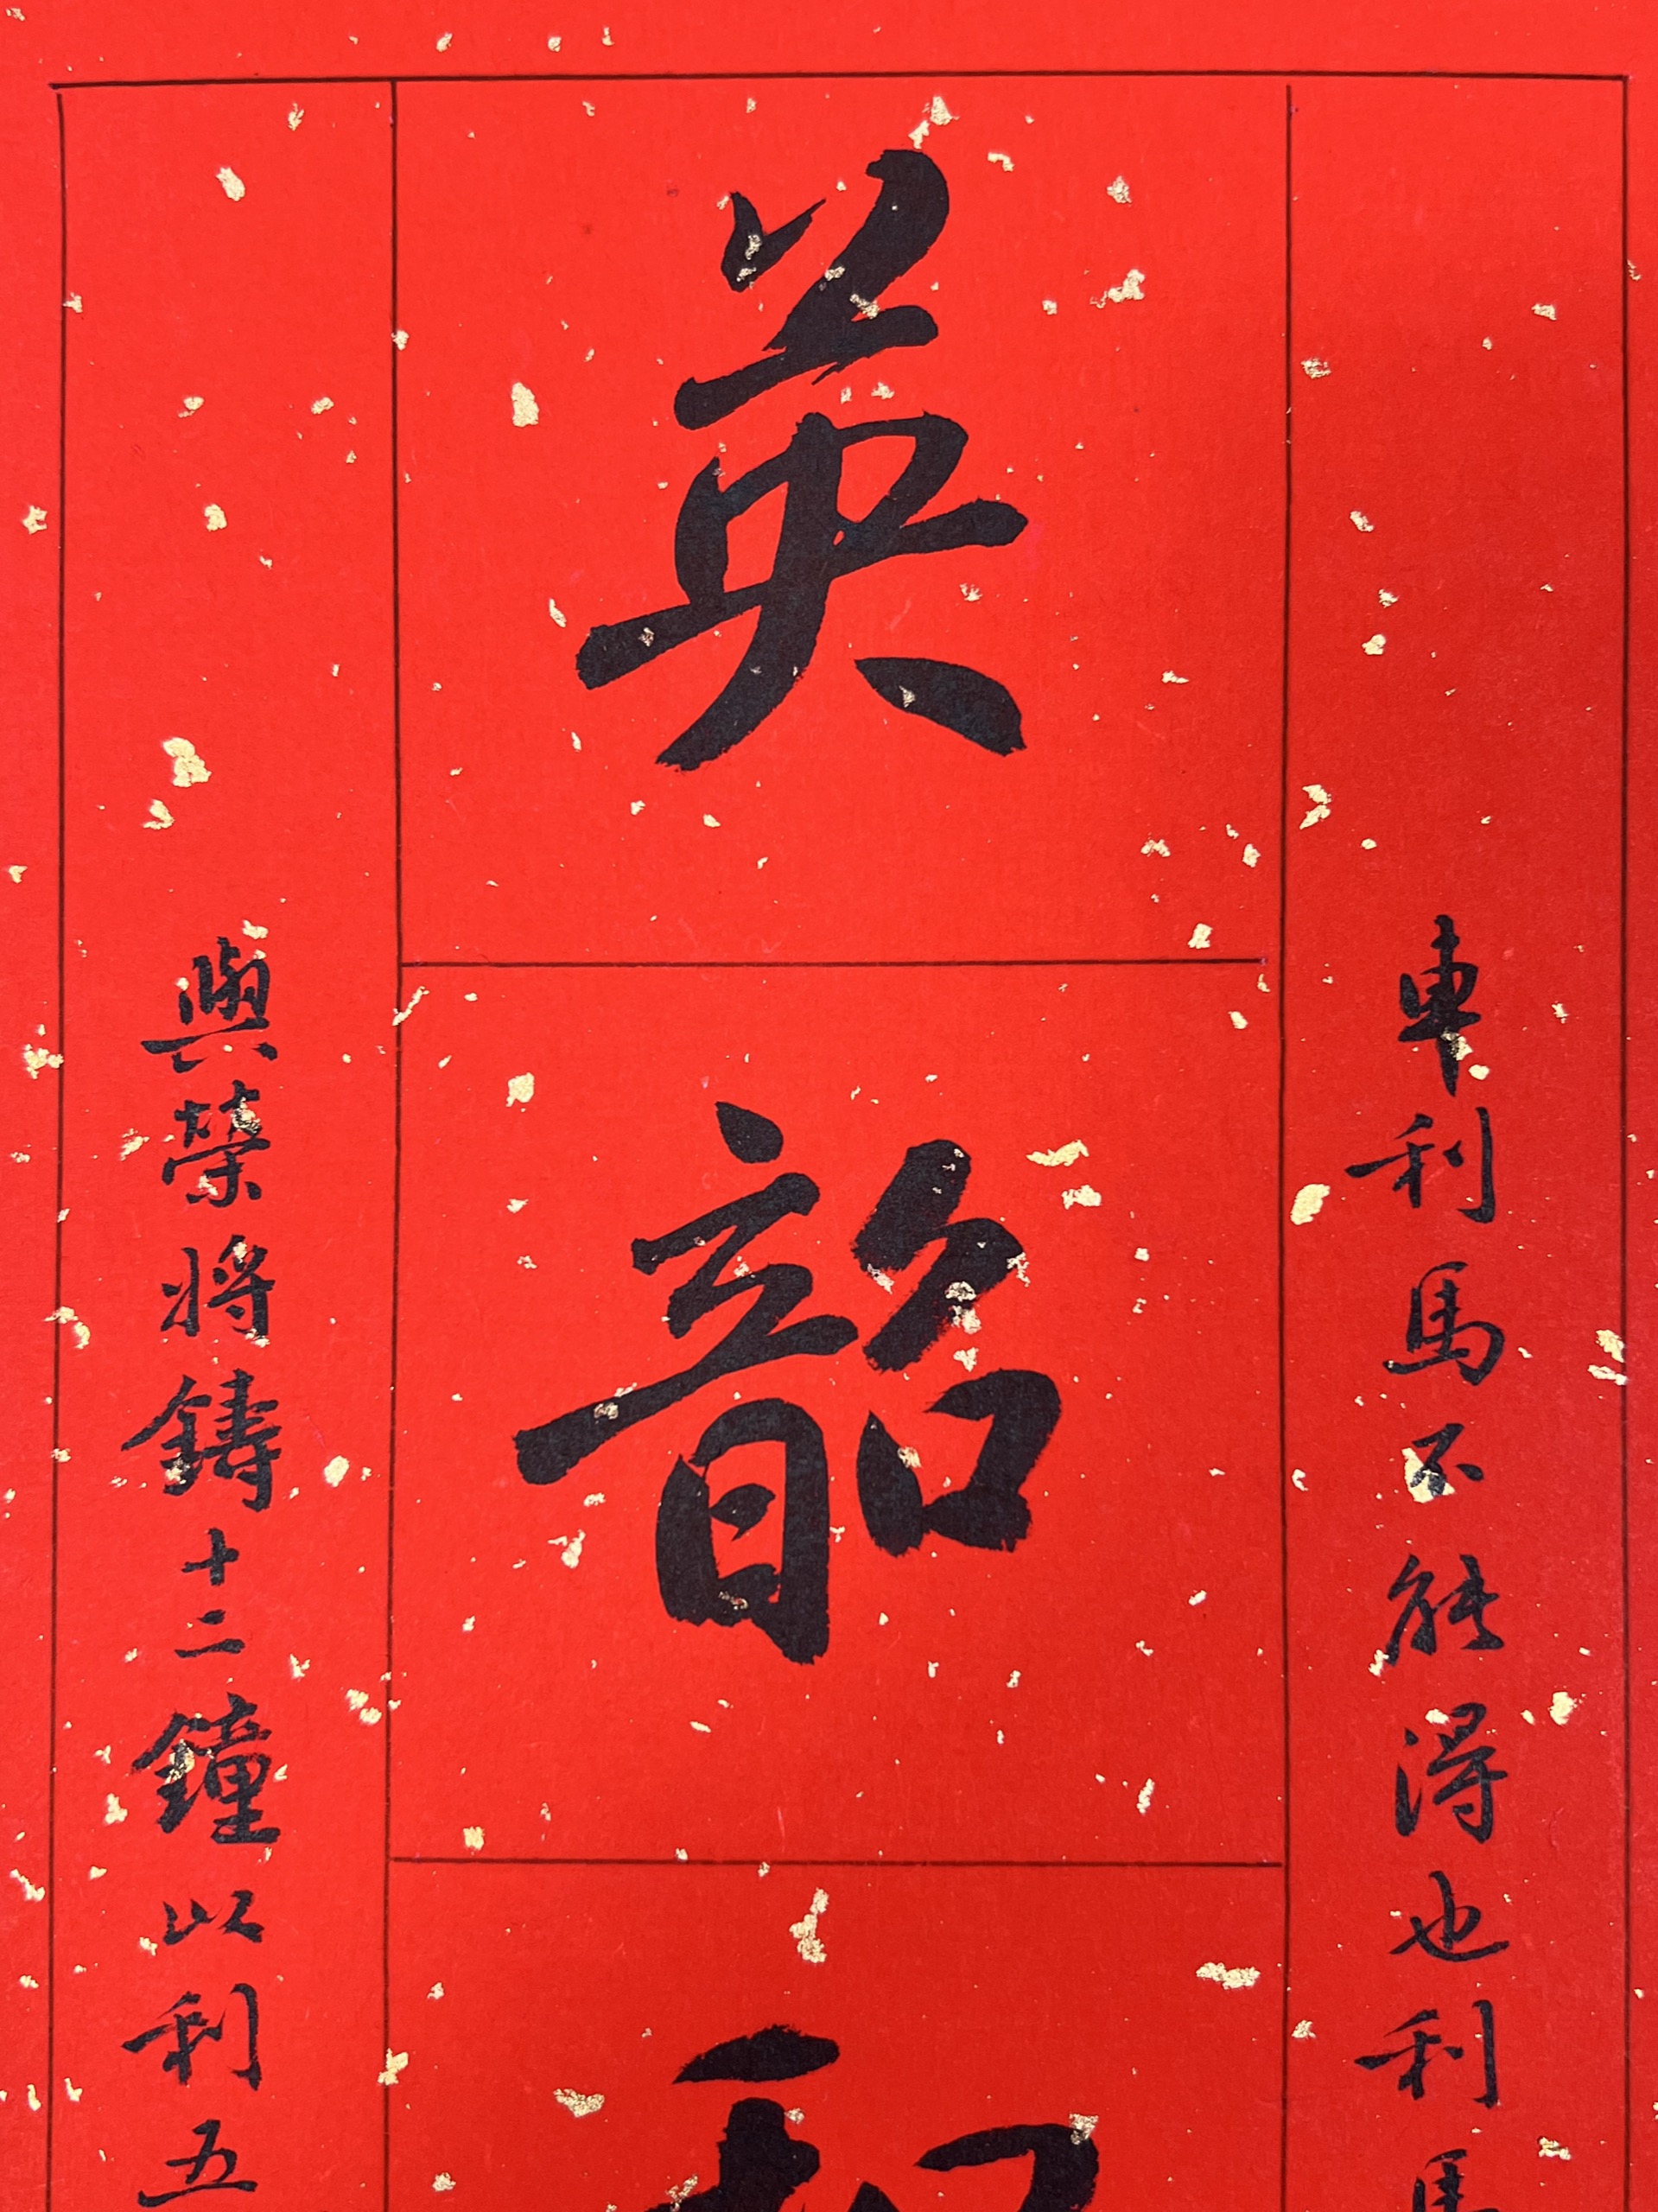 車利馬不能得也利馬
英韶
與榮將鑄十二鐘以利五